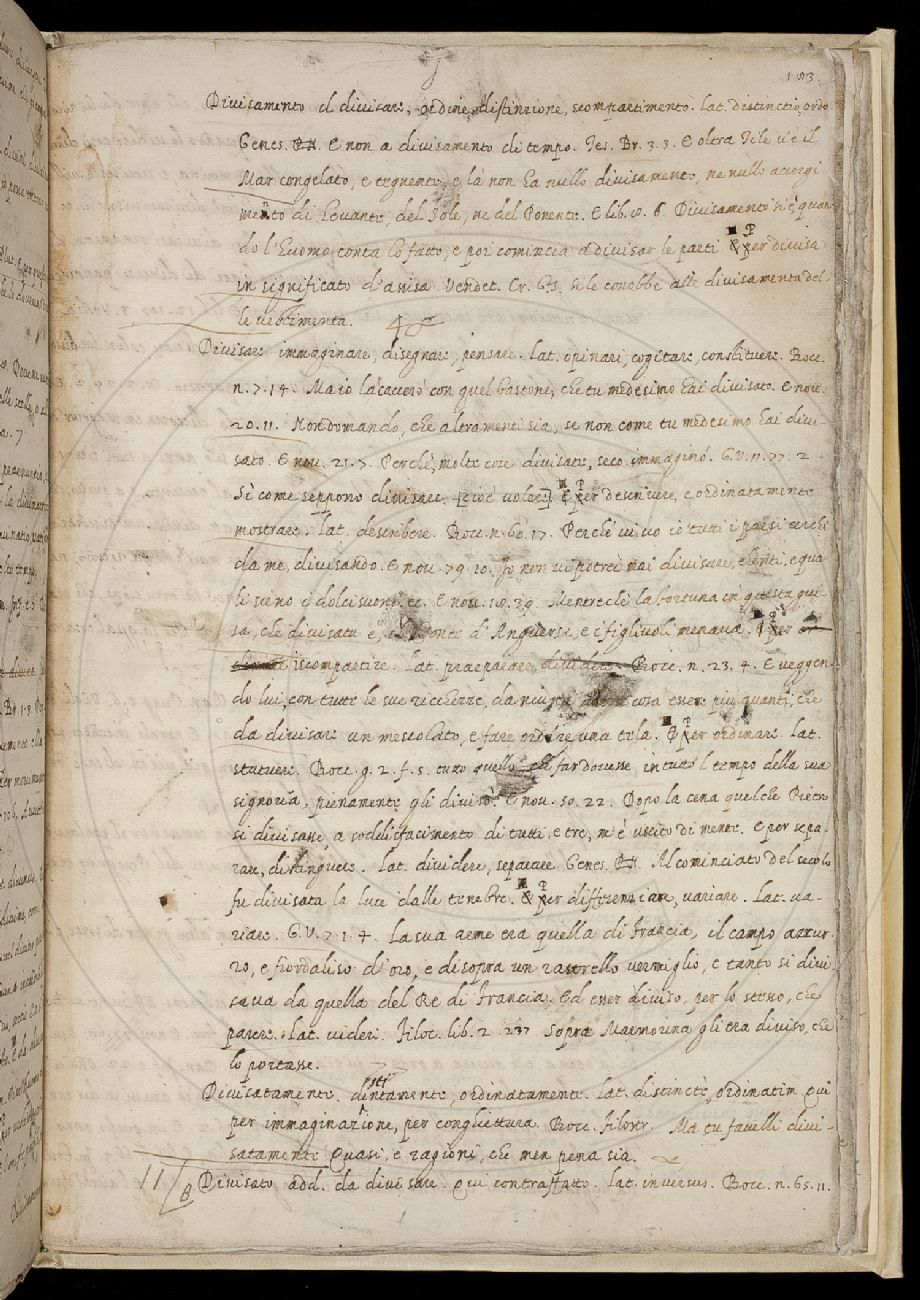 183.
Divisamento il divisare, ordine, distinzione, scompartimento. Lat. distinctio, ordo
Genes. E non a divisamento di tempo. Tes. Br. 3. 3. E oltra Tile v'è il
Mar congelato, e tegnente, e là non ha nullo divisamento, ne nullo accorgi
mento di Levante, del Sole, ne del Ponente. E lib. 8. 6. Divisamento si è quan
do l'Huomo conta lo fatto, e poi comincia a divisar le parti & per divisa
in significato d'assisa. Vendet. Cr. Si le conobbe alle divisamenta del-
le vestimenta.
Divisare immaginare, disegnare, pensare. Lat. opinari, cogitare, constituere. Bocc.
n. 7. 14. Ma io la caccerò con quel bastone, che tu medesimo hai divisato. E nov.
20. 11. Non domando, che altramenti sia, se non come tu medesimo hai divi-
sato. E nov. 21. 7. Perchè, molte cose divisate, seco immaginò. G. V. 11. 77. 2.
Sì come seppono divisare [cioè volere] & per descrivere, e ordinatamente
mostrare. Lat. describere. Bocc. n. 60. 17. Perchè vi vo io tutti i paesi cerchi
da me, divisando. E nov. 79. 10. Io non vi potrei mai divisare, chenti, e qua
li sieno i dolci suoni ec. E nov. 18. 39. Mentrechè la fortuna in questa gui-
sa, che divisata è, il Conte d'Anguersa, e i figlivoli menava. & per
iscompartire. Lat. praeparare, dividere. Bocc. n. 23. 4. E veggen-
do lui, con tutte le sue ricchezze, da niuna altra cosa essere più quanti, che
da divisare un mescolato, e fare ordire una tela. & per ordinare. Lat.
statuere. Bocc. g. 2. f. 5. tutto quello che far dovesse in tutto l tempo della sua
signoria, pienamente gli divisò. E nov. 50. 22. Dopo la cena quelche Pietro
si divisasse, a sodelisfacimento di tutti, e tre, m'è uscito di mente. E per sepa-
rare, distinguere. Lat. dividere, separare Genes. Al cominciato del secolo
fu divisata la luce dalle tenebre. & per differenziare, variare. Lat. va-
riare. G. V. 7. 1. 4. La sua arme era quella di Francia, il campo azzur-
ro, e fiordaliso d'oro, e di sopra un rastrello vermiglio, e tanto si divi-
sava da quella del Re di Francia. Ed esser diviso, per lo stesso, che
parere. Lat. videri. Filoc. lib. 2. 237 Sopra Marmorina gli era diviso, che
lo portasse.
Divisatamente. distintamente, ordinatamente. Lat. distinctè, ordinatim qui
per immaginazione, per conghiettura. Bocc. Filostr. Ma tu favelli divi-
satamente Quasi, e ragioni, che men pena sia.
11 / B Divisato add. da divisare. qui contraffatto. Lat. inversus. Bocc. n. 65. 11.